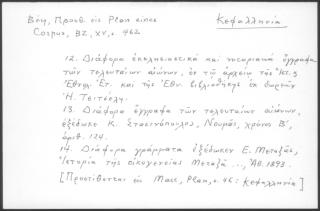 Βέη, Προσθ. εἰς Plan eines
Corpus, BZ, XV, σ. 462
Κεφαλληνία
12. Διάφορα ἐκκλησιαστικὰ καὶ νοταριακὰ ἔγγραφα
τῶν τελευταίων αἰώνων, ἐν τῷ ἀρχείῳ τῆς Ἱστ. &
Ἐθνολ. Ἑτ. καὶ τῆς Ἐθν. βιβλιοθήκης ἐκ δωρεῶν
Η. Τσιτσέλη.
13. Διάφορα ἔγγραφα τῶν τελευταίων αἰώνων,
ἐξέδωκε Κ. Σταεινόπουλος, Νουμᾶς, χρόνος Β',
ἀριθ. 124.
14. Διάφορα γράμματα ἐξέδωκεν Ε. Μεταξᾶς,
Ἱστορία τῆς οἰκογενείας Μεταξᾶ ..., Ἀθ. 1893.
[Προστίθενται εἰς Marc, Plan, σ. 46: Κεφαλληνία]